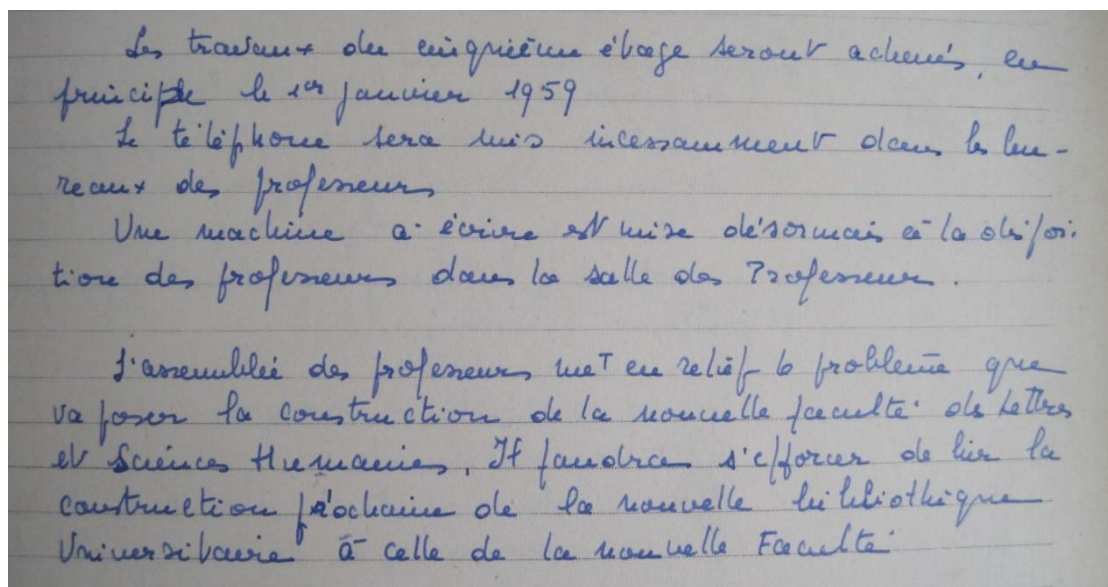 Les travaux du cinquième étage seront achevés, en
principe le 1er janvier 1959
Le téléphone sera mis incessamment dans les bu-
reaux des professeurs
Une machine à écrire est mise désormais à la disposi-
tion des professeurs dans la salle des Professeurs.
L'assemblée des professeurs met en relief le problème que
va poser la construction de la nouvelle faculté des Lettres
et Sciences Humaines. Il faudra s'efforcer de lier la
construction prochaine de la nouvelle bibliothèque
Universitaire à celle de la nouvelle Faculté